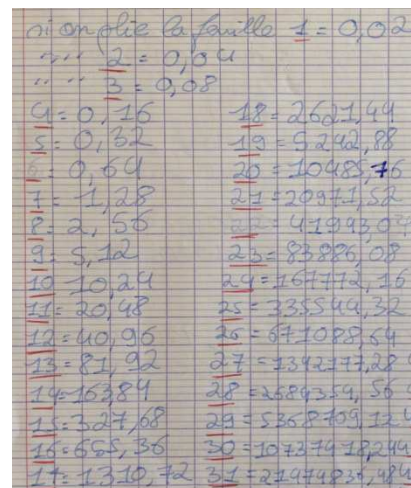 si on plie la feuille 1 = 0,02
" " 2 = 0,04
" " 3 = 0,08
4 = 0,16
5 = 0,32
6 = 0,64
7 = 1,28
8 = 2,56
9 = 5,12
10 10,24
11 = 20,48
12 = 40,96
13 = 81,92
14 = 163,84
15 = 327,68
16 = 655,36
17 = 1310,72
18 = 2621,44
19 = 5242,88
20 = 10485,76
21 = 20971,52
= 41943,04
23 = 83886,08
24 = 167772,16
25 = 335544,32
26 = 671088,64
27 = 1342177,28
28 = 2684354,56
29 = 5368709,124
30 = 10737418,244
31 = 21474836,484